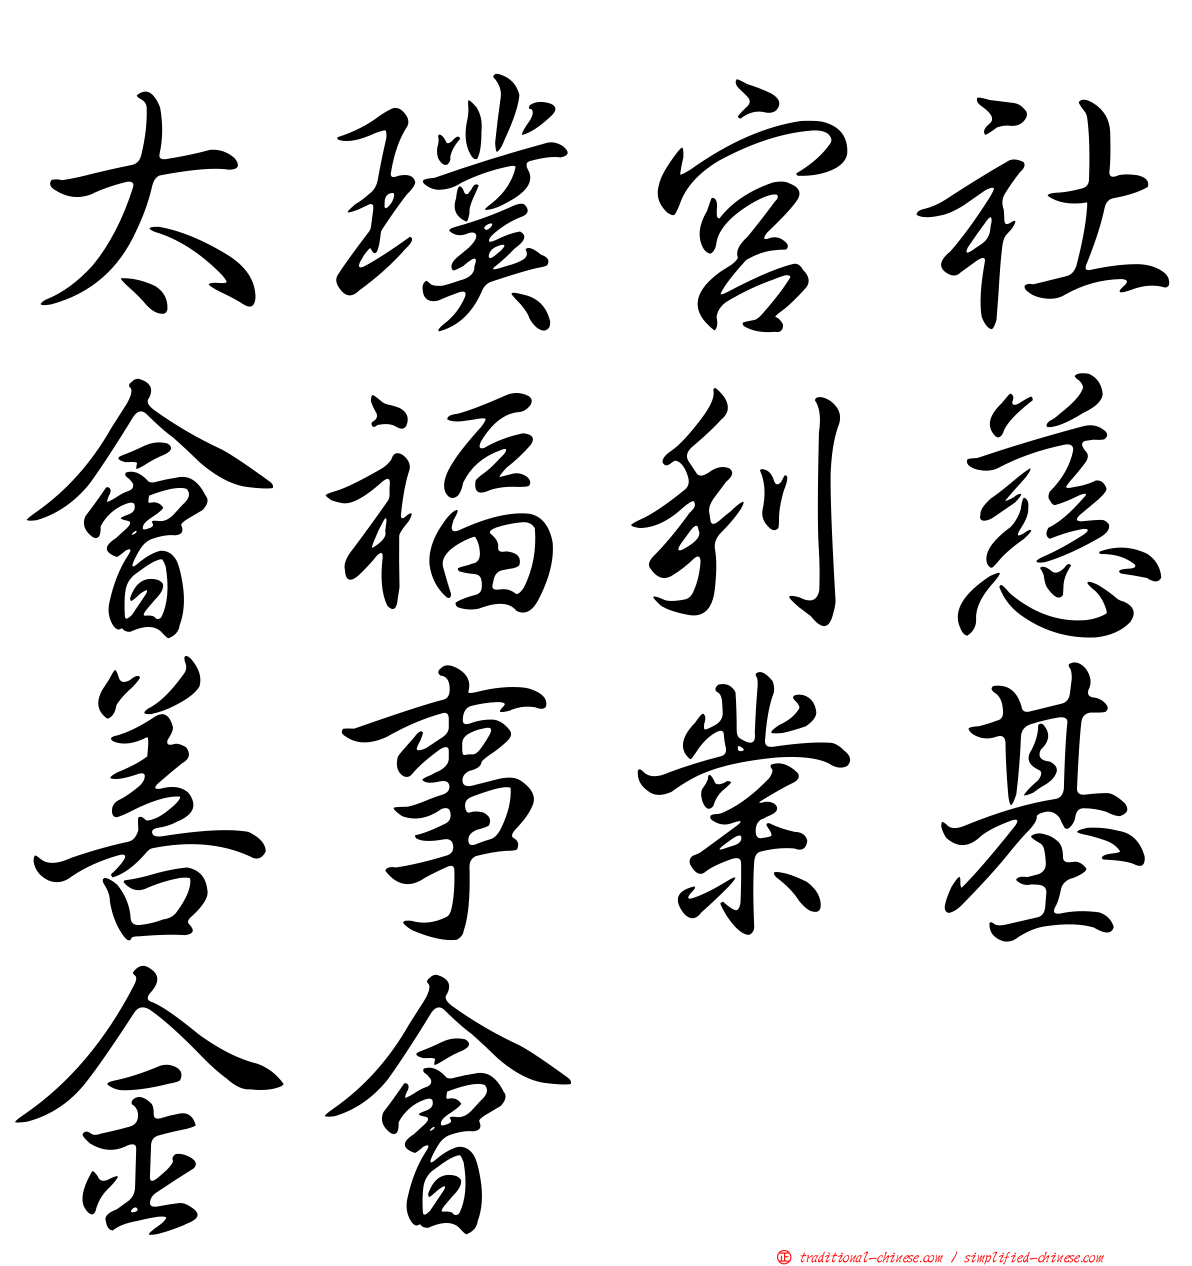 太璞宮社
會福利慈
善事業基
金會
正 traditional-chinese.com / simplified-chinese.com